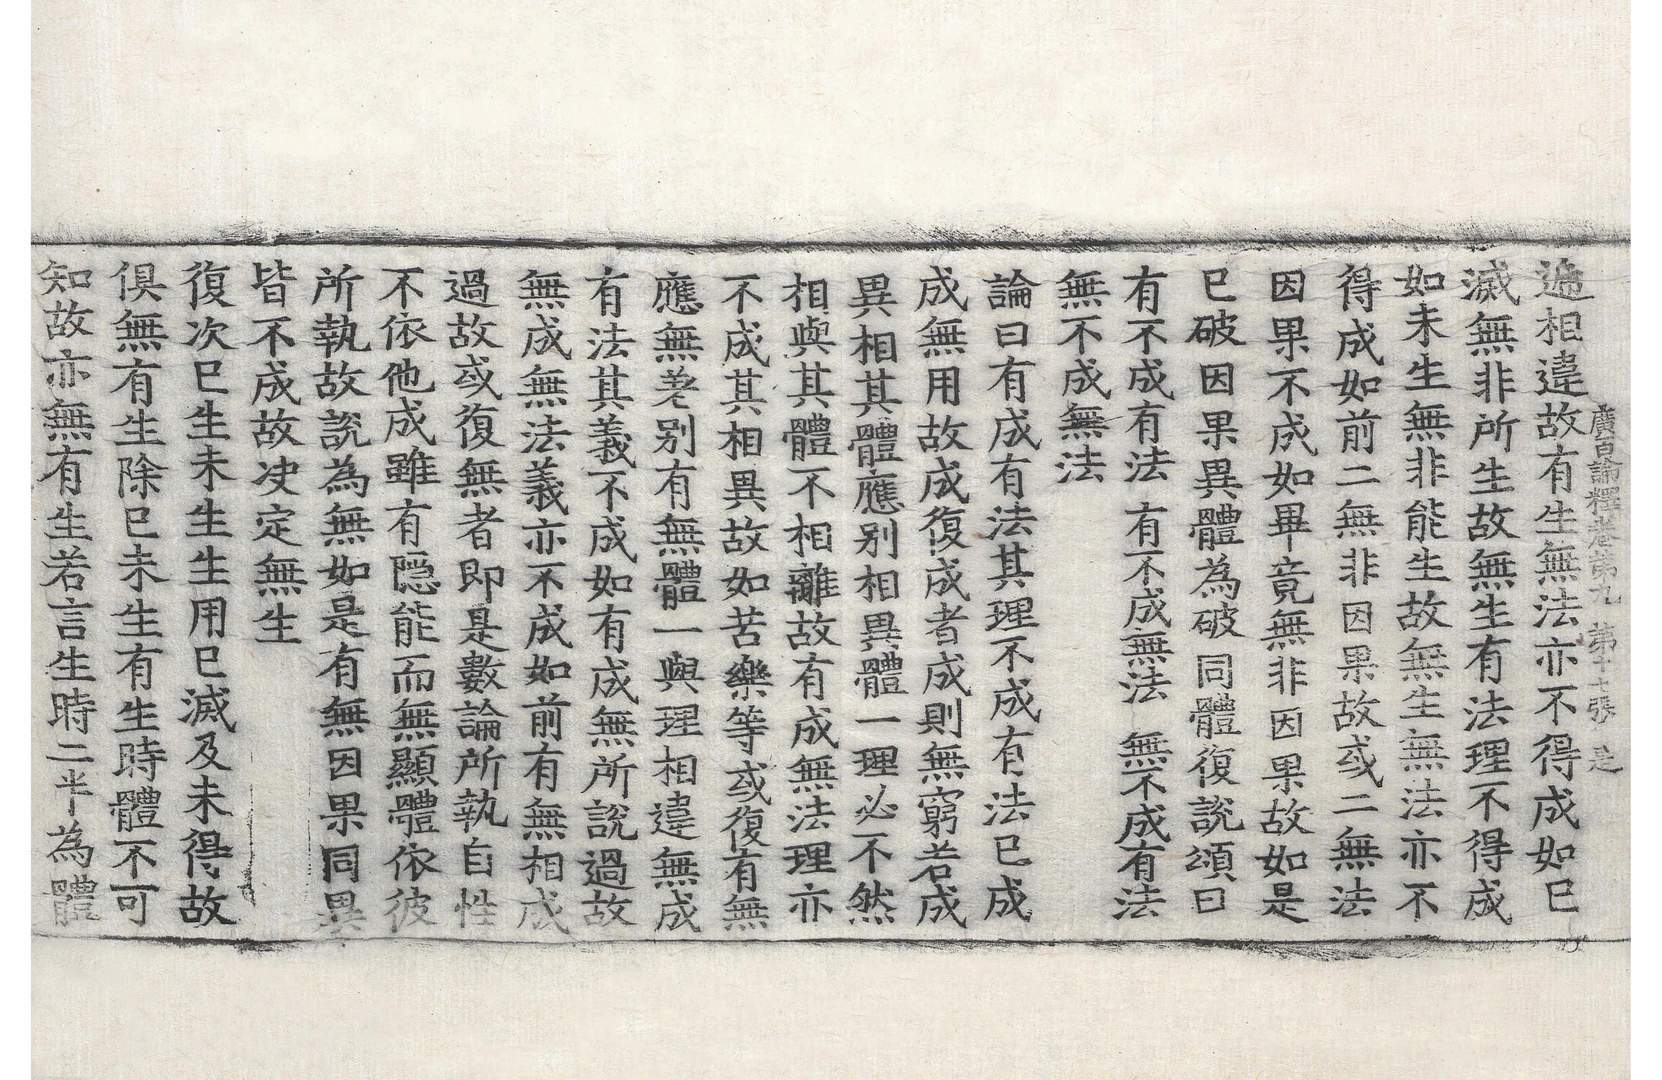 廣百論釋卷第九　第十七張　是
遞相違故有生無法亦不得成如已
滅無非所生故無生有法理不得成
如未生無非能生故無生無法亦不
得成如前二無非因果故或二無法
因果不成如畢竟無非因果故如是
已破因果異體為破同體復說頌曰
有不成有法　有不成無法　無不成有法
無不成無法
論曰有成有法其理不成有法已成
成無用故成復成者成則無窮若成
異相其體應別相異體一理必不然
相與其體不相離故有成無法理亦
不成其相異故如苦樂等或復有無
應無差別有無體一與理相違無成
有法其義不成如有成無所說過故
無成無法義亦不成如前有無相成
過故或復無者即是數論所執自性
不依他成雖有隱能而無顯體依彼
所執故說為無如是有無因果同異
皆不成故決定無生
復次已生未生生用已滅及未得故
俱無有生除已未生有生時體不可
知故亦無有生若言生時二半為體